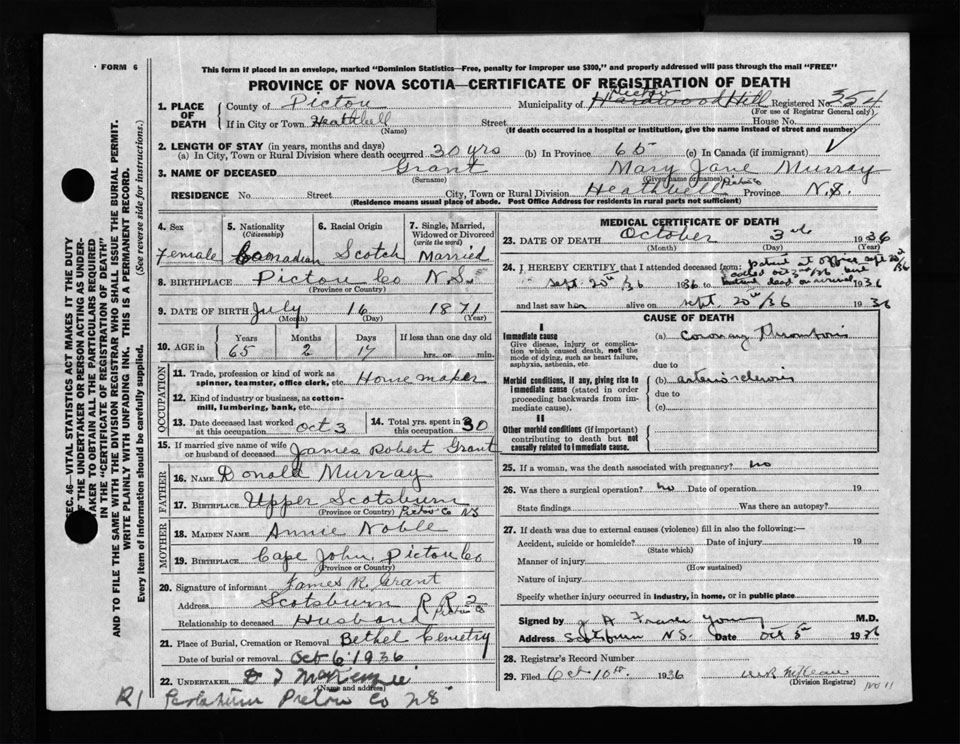 FORM 6
This form if placed in an envelope, marked "Dominion Statistics—Free, penalty for improper use $300," and properly addressed will pass through the mail "FREE"
PROVINCE OF NOVA SCOTIA—CERTIFICATE OF REGISTRATION OF DEATH
1. PLACE OF DEATH
County of Pictou Municipality of Pictou Hardwood Hill Registered No. 354
(For use of Registrar General only)
If in City or Town Heathbell Street House No.
(Name) (If death occurred in a hospital or institution, give the name instead of street and number)
2. LENGTH OF STAY (in years, months and days)
(a) In City, Town or Rural Division where death occurred 30 yrs (b) In Province 65 (c) In Canada (if immigrant)
3. NAME OF DECEASED Grant Mary Jane Murray
(Surname) (Given name or names)
RESIDENCE No. Street City, Town or Rural Division Heathbell Pictou Province N.S.
(Residence means usual place of abode. Post Office Address for residents in rural parts not sufficient)
4. Sex 5. Nationality (Citizenship) 6. Racial Origin 7. Single, Married, Widowed or Divorced (write the word)
Female Canadian Scotch Married
8. BIRTHPLACE Pictou Co N.S.
(Province or Country)
9. DATE OF BIRTH July 16 1871
(Month) (Day) (Year)
10. AGE in Years Months Days If less than one day old
65 2 17 hrs. or min.
OCCUPATION
11. Trade, profession or kind of work as spinner, teamster, office clerk, etc. Home maker
12. Kind of industry or business, as cotton-mill, lumbering, bank, etc.
13. Date deceased last worked at this occupation Oct 3 14. Total yrs. spent in this occupation 30
15. If married give name of wife or husband of deceased James Robert Grant
FATHER
16. NAME Donald Murray
17. BIRTHPLACE Upper Scotsburn
(Province or Country) Pictou Co NS
MOTHER
18. MAIDEN NAME Annie Noble
19. BIRTHPLACE Cape John, Pictou Co
(Province or Country)
20. Signature of informant James R. Grant
Address Scotsburn R R 2
Relationship to deceased Husband
21. Place of Burial, Cremation or Removal Bethel Cemetry
Date of burial or removal Oct 6 1936
22. UNDERTAKER D McKenzie
(Name and address)
R1 Pictou Co NS
MEDICAL CERTIFICATE OF DEATH
23. DATE OF DEATH October 3rd 1936
(Month) (Day) (Year)
24. I HEREBY CERTIFY that I attended deceased from: patient at office sept 20/36
called oct 3rd/36 but
sept 20th/36 1936 to patient dead on arrival 1936
and last saw her alive on sept 20th/36 1936
CAUSE OF DEATH
I
Immediate cause (a) Coronary Thrombosis
Give disease, injury or complication which caused death, not the mode of dying, such as heart failure, asphyxia, asthenia, etc.
due to
Morbid conditions, if any, giving rise to immediate cause (stated in order proceeding backwards from immediate cause).
(b) arterio sclerosis
due to
(c)
II
Other morbid conditions (if important) contributing to death but not causally related to immediate cause.
25. If a woman, was the death associated with pregnancy? no
26. Was there a surgical operation? no Date of operation 19
State findings Was there an autopsy?
27. If death was due to external causes (violence) fill in also the following:—
Accident, suicide or homicide? Date of injury 19
(State which)
Manner of injury
(How sustained)
Nature of injury
Specify whether injury occurred in industry, in home, or in public place
Signed by J A Fraser Young M.D.
Address Scotsburn N.S. Date Oct 5th 1936
28. Registrar's Record Number
29. Filed Oct 10th 1936
(Division Registrar)
SEC. 46—VITAL STATISTICS ACT MAKES IT THE DUTY OF THE UNDERTAKER OR PERSON ACTING AS UNDERTAKER TO OBTAIN ALL THE PARTICULARS REQUIRED IN THE "CERTIFICATE OF REGISTRATION OF DEATH"
AND TO FILE THE SAME WITH THE DIVISION REGISTRAR WHO SHALL ISSUE THE BURIAL PERMIT.
WRITE PLAINLY WITH UNFADING INK. THIS IS A PERMANENT RECORD.
Every item of information should be carefully supplied. (See reverse side for instructions.)